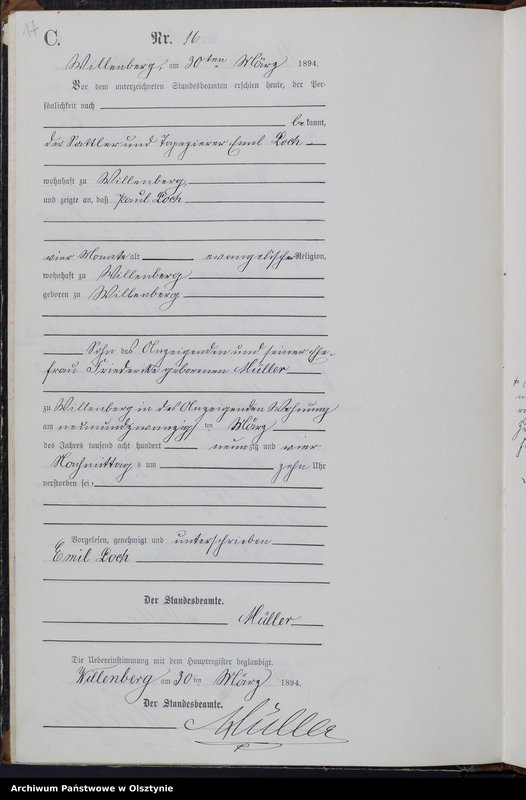 17
C.
Nr. 16
Willenberg, am 30ten März 1894.
Vor dem unterzeichneten Standesbeamten erschien heute, der Per-
sönlichkeit nach
bekannt,
der Sattler und Tapezierer Emil Loch
wohnhaft zu Willenberg,
und zeigte an, daß Paul Loch
vier Monate alt evangelischer Religion,
wohnhaft zu Willenberg
geboren zu Willenberg
Sohn des Anzeigenden und seiner Ehe-
frau Friederike geborenen Müller
zu Willenberg in des Anzeigenden Wohnung
am neunundzwanzigsten ten März
des Jahres tausend acht hundert neunzig und vier
Nachmittags um zehn Uhr
verstorben sei.
Vorgelesen, genehmigt und unterschrieben
Emil Loch
Der Standesbeamte.
Müller
Die Uebereinstimmung mit dem Hauptregister beglaubigt.
Willenberg am 30ten März 1894.
Der Standesbeamte.
Müller
Archiwum Państwowe w Olsztynie